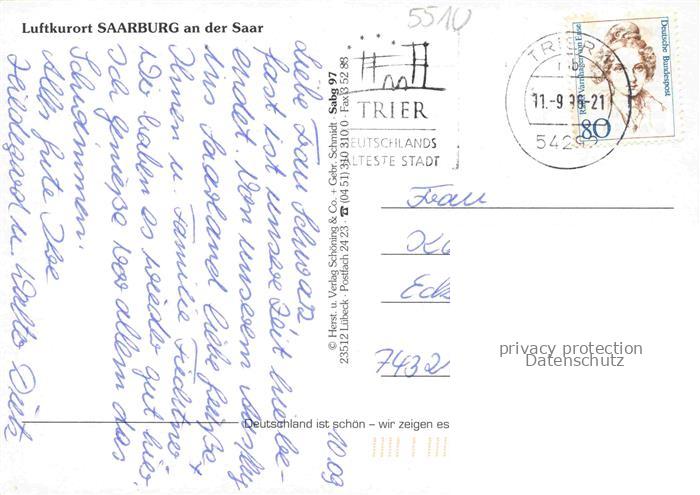 Luftkurort SAARBURG an der Saar
5510
TRIER
DEUTSCHLANDS
ÄLTESTE STADT
TRIER
11.-9.96.-21
5429
Deutsche Bundespost
Rahel Varnhagen von Ense
80
10.09
Liebe Frau Schwarz
fast ist unsere Zeit hier be-
endet. Von unserem Ausflug
ins Saarland liebe Grüße
Ihnen u. Familie
Wir haben es wieder gut hier.
Ich genieße vor allem das
Schwimmen.
Alles Gute Ihre
Hildegard u. Walter Dietz
© Herst. u. Verlag Schöning & Co. + Gebr. Schmidt · Sabg 97
23512 Lübeck · Postfach 24 23 · ☎ (04 51) 3 10 31 0 · Fax 3 52 88
Frau
Ecke
7432
privacy protection
Datenschutz
Deutschland ist schön – wir zeigen es